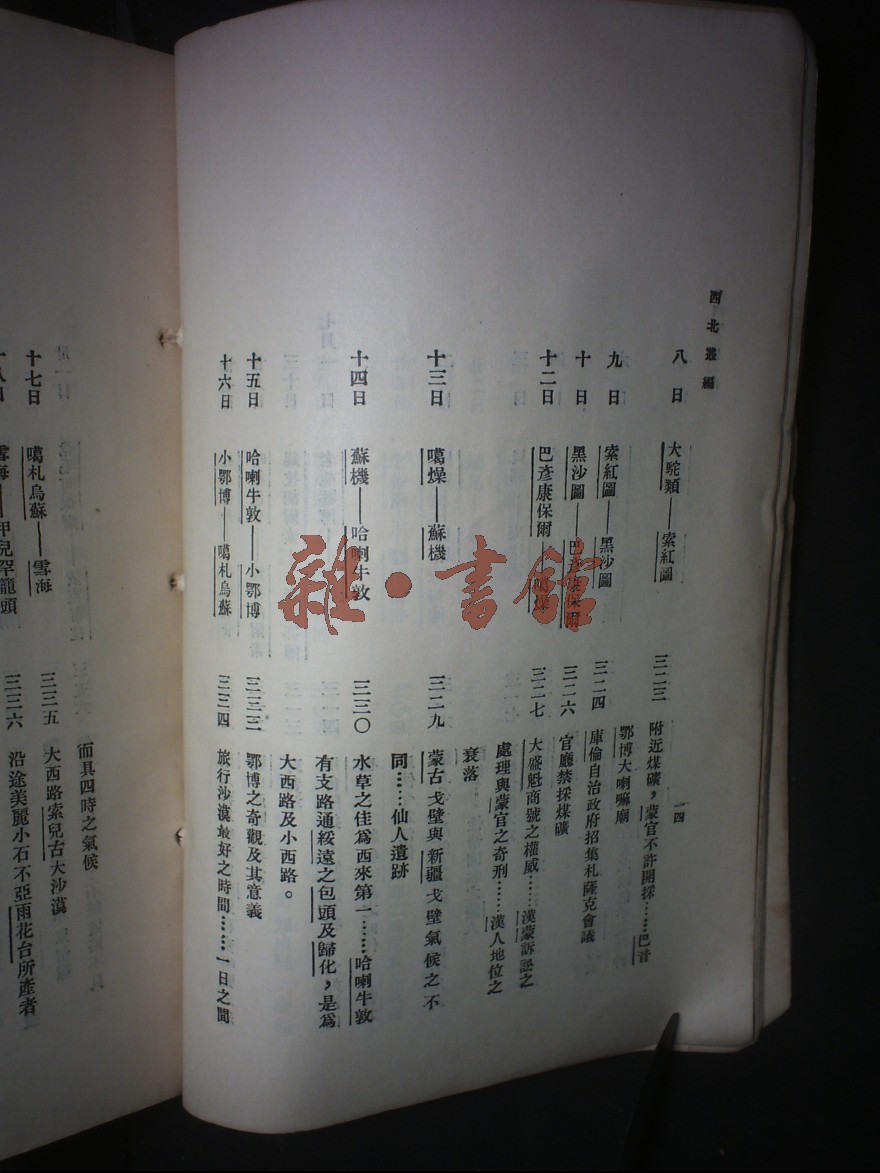 西北叢編
一四
八日 大駝類——索紅圖 三二三 附近煤礦，蒙官不許開採……巴音
鄂博大喇嘛廟
九日 索紅圖——黑沙圖 三二四 庫倫自治政府招集札薩克會議
十日 黑沙圖——巴彥康保爾 三二六 官廳禁採煤礦
十二日 巴彥康保爾——噶燥 三二七 大盛魁商號之權威……漢蒙訴訟之
處理與蒙官之奇刑……漢人地位之
衰落
十三日 噶燥——蘇機 三二九 蒙古戈壁與新疆戈壁氣候之不
同……仙人遺跡
十四日 蘇機——哈喇牛敦 三三〇 水草之佳爲西來第一……哈喇牛敦
有支路通綏遠之包頭及歸化，是爲
大西路及小西路。
十五日 哈喇牛敦——小鄂博 三三二 鄂博之奇觀及其意義
十六日 小鄂博——噶札烏蘇 三三四 旅行沙漠最好之時間……一日之間
而具四時之氣候
十七日 噶札烏蘇——雪海 三三五 大西路索兒古大沙漠
十八日 雪海——甲兒罕龍頭 三三六 沿途美麗小石不亞雨花台所產者
雜·書館